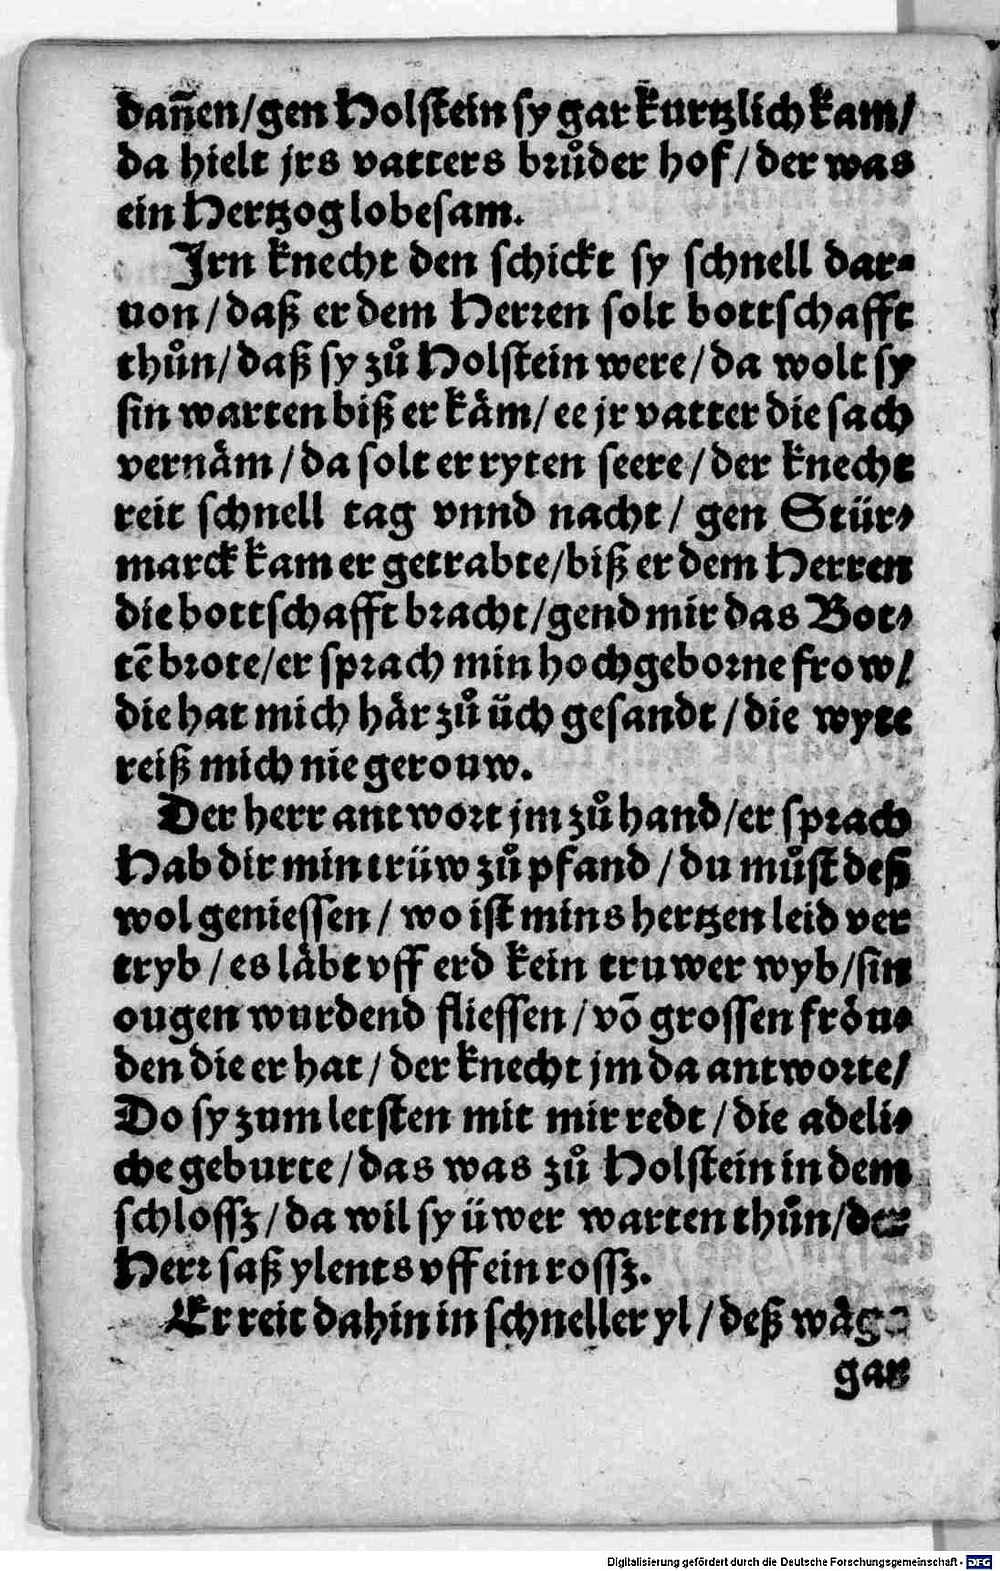 dañen/gen Holstein sy gar kurtzlich kam/
da hielt jrs vatters brůder hof/der was
ein Hertzog lobesam.
Irn knecht den schickt sy schnell dar-
uon/daß er dem Herren solt bottschafft
thůn/daß sy zů Holstein were/da wolt sy
sin warten biß er käm/ee jr vatter die sach
vernäm/da solt er ryten seere/der knecht
reit schnell tag vnnd nacht/ gen Stür-
marck kam er getrabte/biß er dem Herren
die bottschafft bracht/gend mir das Bot-
tẽ brote/er sprach min hochgeborne frow/
die hat mich här zů üch gesandt/die wyte
reiß mich nie gerouw.
Der herr antwort jm zů hand/er sprach
Hab dir min trüw zů pfand/du můst deß
wol geniessen/ wo ist mins hertzen leid ver
tryb/es läbt vff erd kein truwer wyb/sin
ougen wurdend fliessen/võ grossen fröu-
den die er hat/der knecht jm da antworte/
Do sy zum letsten mit mir redt/die adeli-
che geburte/das was zů Holstein in dem
schlossz/da wil sy üwer warten thůn/der
Herr saß ylents vff ein rossz.
Er reit dahin in schneller yl/deß wäg
gar
Digitalisierung gefördert durch die Deutsche Forschungsgemeinschaft - DFG